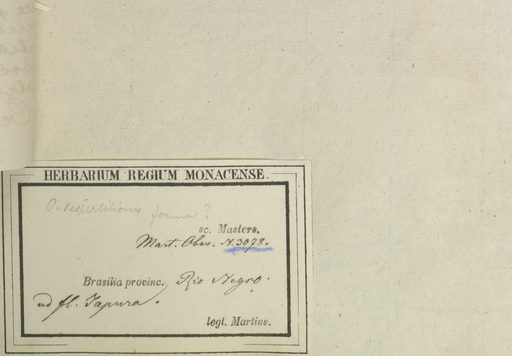 HERBARIUM REGIUM MONACENSE.
O. vespertilionis forma?
sc. Masters.
Mart. Obs. N. 3078.
Brasilia provinc. Rio Negro.
ad fl. Japura.
legt. Martius.